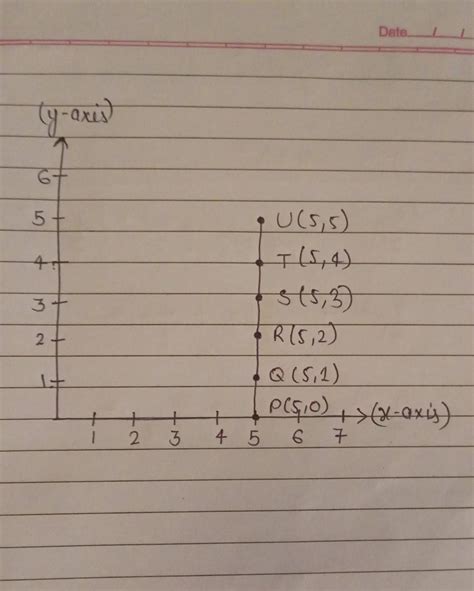 Date / /
(y-axis)
6
5 U(5,5)
4 T(5,4)
3 S(5,3)
2 R(5,2)
1 Q(5,1)
P(5,0) (x-axis)
1 2 3 4 5 6 7